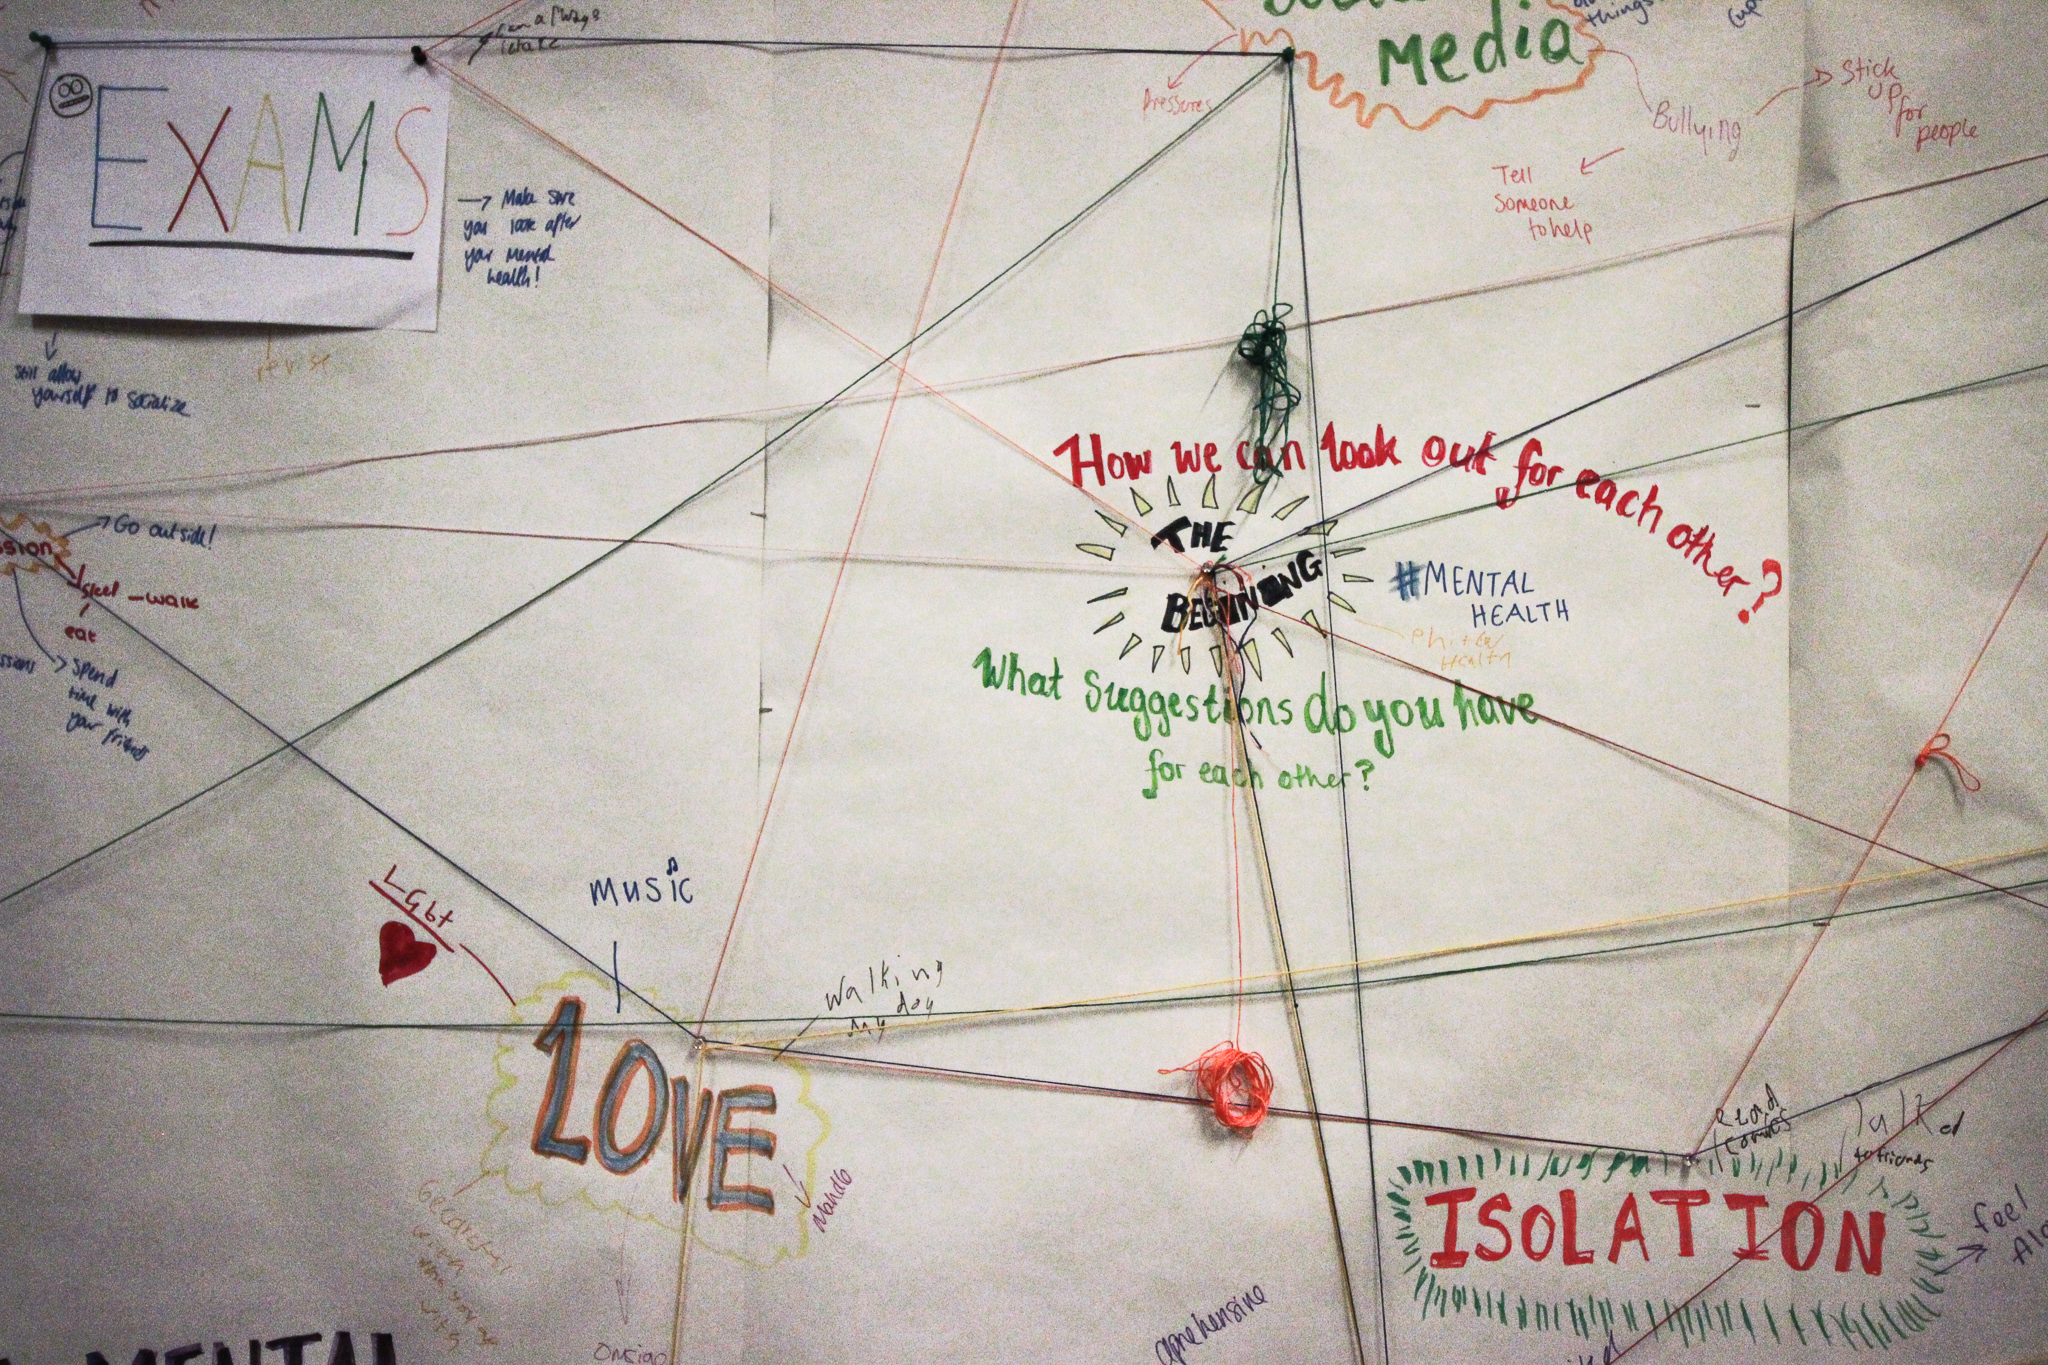 EXAMS
Make sure
you look after
your mental
health!
Still allow
yourself to socialize
revise
Media
Pressures
Bullying
Stick
up
for
people
Tell
Someone
to help
things
How we can look out for each other?
THE
BEGINING
#MENTAL
HEALTH
What suggestions do you have
for each other?
Go outside!
ssion
walk
eat
Spend
time with
your friends
LGbt
music
walking
my dog
LOVE
Read
comics
Talked
to friends
ISOLATION
feel
MENTAL